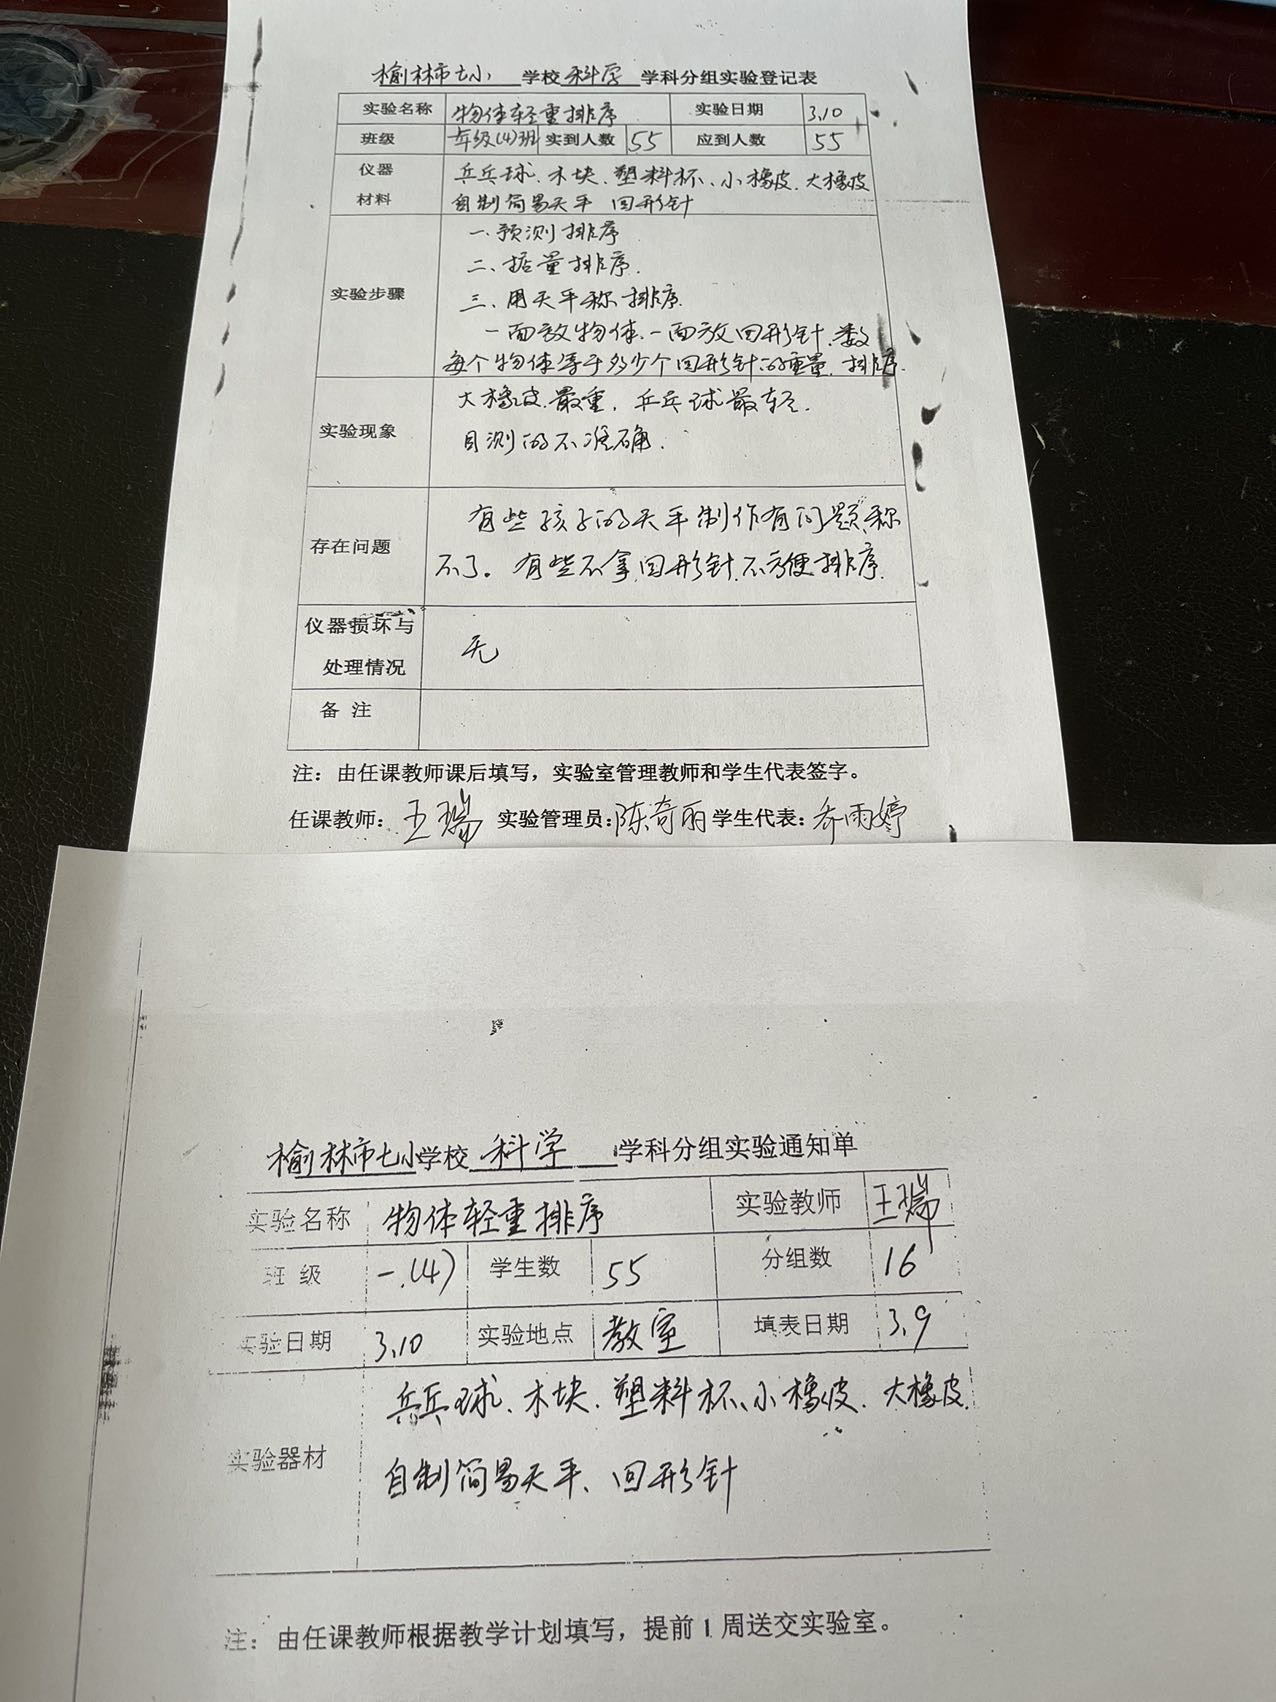 榆林市七小 学校 科学 学科分组实验登记表
实验名称 物体轻重排序 实验日期 3.10
班级 年级(4)班 实到人数 55 应到人数 55
仪器 乒乓球、木块、塑料杯、小橡皮、大橡皮
材料 自制简易天平 回形针
一、预测排序
二、掂量排序.
实验步骤 三、用天平称排序.
一面放物体、一面放回形针、数
每个物体等于多少个回形针的重量、排序.
大橡皮最重,乒乓球最轻.
实验现象 目测的不准确.
有些孩子的天平制作有问题,称
存在问题 不了。有些不拿回形针,不方便排序.
仪器损坏与
处理情况 无
备 注
注:由任课教师课后填写,实验室管理教师和学生代表签字。
任课教师: 王瑞 实验管理员: 陈奇丽 学生代表: 乔雨婷
榆林市七小 学校 科学 学科分组实验通知单
实验名称 物体轻重排序 实验教师 王瑞
班 级 一.(4) 学生数 55 分组数 16
实验日期 3.10 实验地点 教室 填表日期 3.9
乒乓球、木块、塑料杯、小橡皮、大橡皮.
实验器材 自制简易天平、回形针
注:由任课教师根据教学计划填写,提前1周送交实验室。